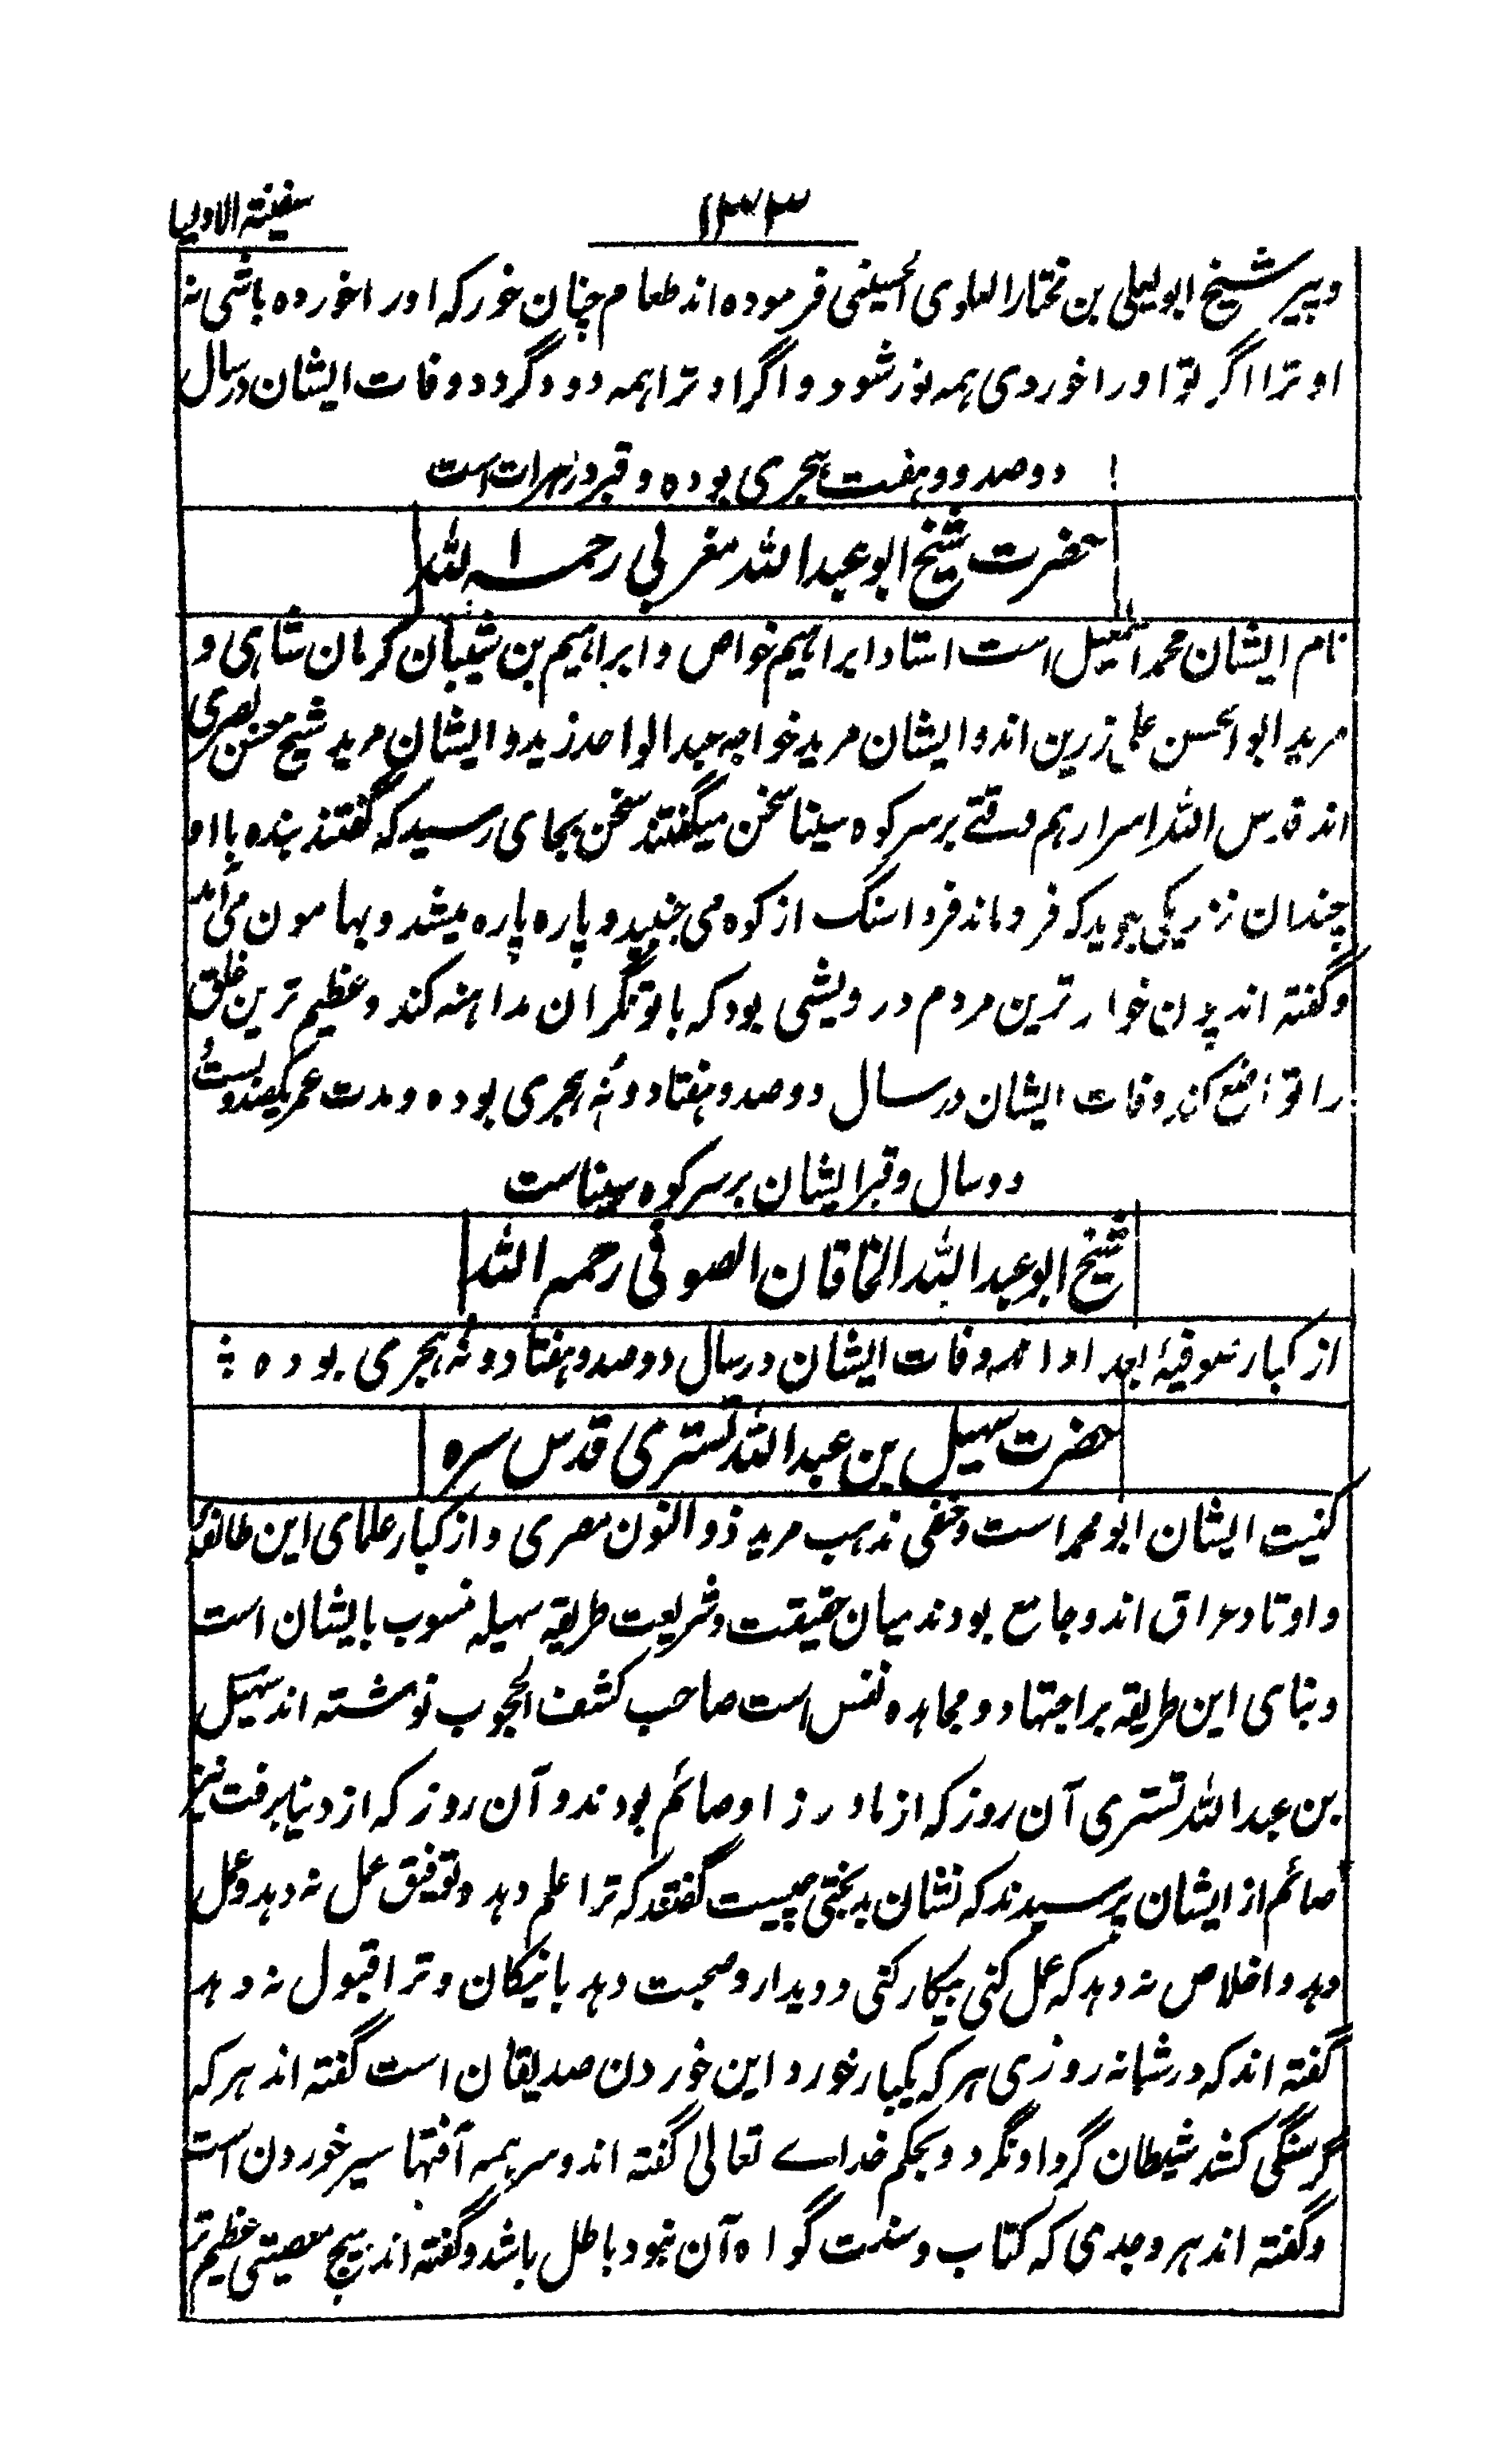 سفینة الاولیا
۱۳۳
و پیر شیخ ابو لیلی بن مختار العلوی الحسینی فرموده اند طعام چنان خور که او را خورده باشی نه
او ترا اگر تو او را خوردی همه نور شود و اگر او ترا همه دود گردد وفات ایشان در سال
دو صد و هفت هجری بوده و قبر در هرات است
حضرت شیخ ابو عبد الله مغربی رحمه الله
نام ایشان محمد اسمعیل است استاد ابراهیم خواص و ابراهیم بن شیبان کرمان شاهی و
مرید ابو الحسن علی زرین اند و ایشان مرید خواجه عبد الواحد زید و ایشان مرید شیخ حسن بصری
اند قدس الله اسرارهم وقتے بر سر کوه سینا سخن میگفتند سخن بجای رسید که گفتند بنده با او
چندان نزدیکی جوید که فرو ماند فردا سنگ از کوه می جنبید و پاره پاره میشد و بهامون می آمد
و گفته اند چون خوار ترین مردم درویشی بود که با توانگران مداهنه کند و عظیم ترین خلق
را تواضع کند وفات ایشان در سال دو صد و هفتاد و نه هجری بوده و مدت عمر یکصد و بیست و
دو سال و قبر ایشان بر سر کوه سینا ست
شیخ ابو عبد الله الخاقان الصوفی رحمه الله
از کبار صوفیۀ بغداد اند وفات ایشان در سال دو صد و هفتاد و نه هجری بوده
حضرت سهیل بن عبد الله تستری قدس سره
کنیت ایشان ابو محمد است و حنفی مذهب مرید ذو النون مصری و از کبار علمای این طائفه
و اوتاد عراق اند و جامع بودند میان حقیقت و شریعت طریقه سهیله منسوب بایشان است
و بنای این طریقه بر اجتهاد و مجاهده نفس است صاحب کشف المحجوب نوشته اند سهیل
بن عبد الله تستری آن روز که از مادر زاد صائم بودند و آن روز که از دنیا برفت نیز
صائم از ایشان پرسیدند که نشان بدبختی چیست گفتند که ترا علم دهد و توفیق عمل نه دهد و عمل
دهد و اخلاص نه دهد که عمل کنی بیکار کنی و دیدار و صحبت دهد با نیکان و ترا قبول نه دهد
گفته اند که در شبانه روزی هر که یکبار خورد این خوردن صدیقان است گفته اند هر که
گرسنگی کشد شیطان گرد او نگردد و بحکم خدای تعالی گفته اند و سر همه آفتها سیر خوردن است
و گفته اند هر وجدی که کتاب و سنت گواه آن نبود باطل باشد و گفته اند هیچ معصیتی عظیم تر